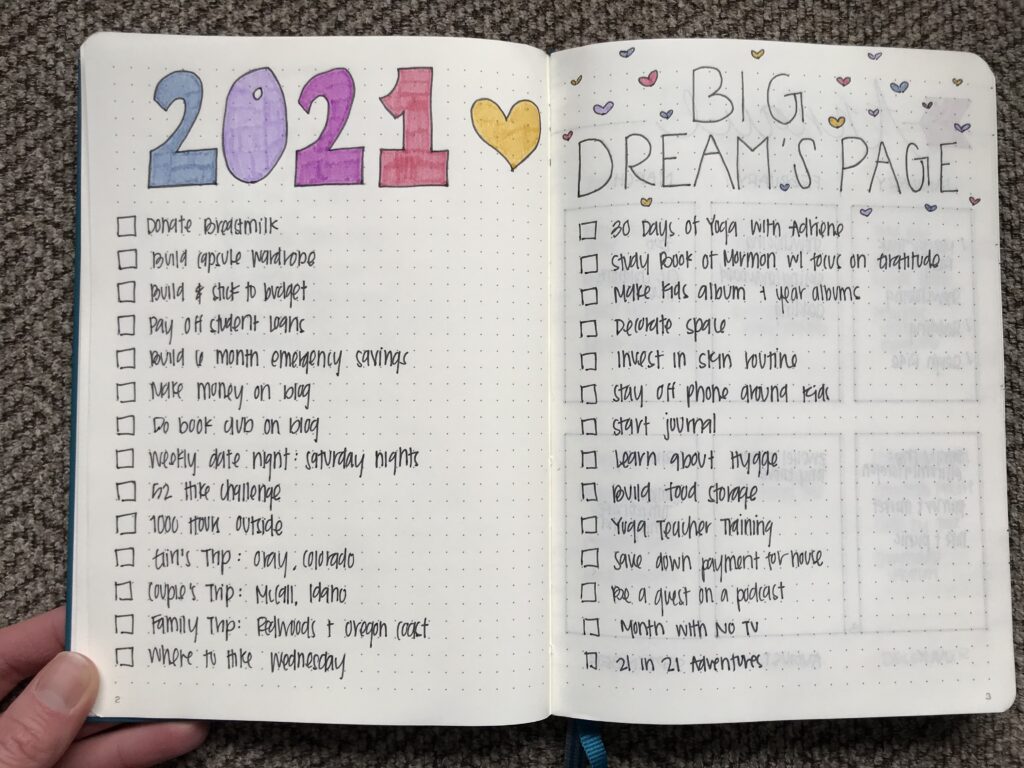 2021
Donate Breastmilk
Build capsule wardrobe
Build & stick to budget
Pay off student loans
Build 6 month emergency savings
Make money on blog
Do book club on blog
Weekly date night: Saturday nights
52 Hike Challenge
1000 Hours Outside
Trip: Colorado
Couple's Trip: McCall, Idaho
Family Trip: Redwoods + Oregon Coast
Where to Hike Wednesday
2
BIG
DREAM'S PAGE
30 Days of Yoga with Adriene
Study Book of Mormon w/ focus on Gratitude
Make Kids album + year albums
Decorate space
Invest in skin routine
Stay off phone around kids
Start journal
Learn about Hygge
Build food storage
Yoga Teacher Training
Save down payment for house
Be a guest on a podcast
Month with No TV
21 in 21 Adventures
3